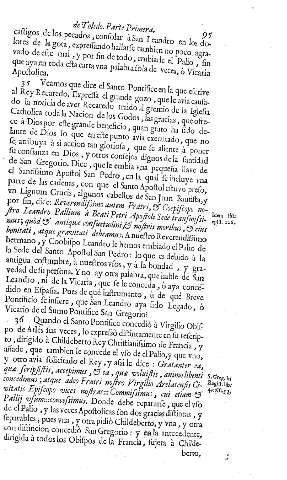 de Toledo. Parte Primera. 95
castigos de los pecados, consolar à San Leandro en los do-
lores de la gota, expressando hallarse tambien no poco agra-
vado de este mal, y por fin de todo, embiarle el Palio, sin
que aya en toda esta carta vna palabra sola de vezes, ò Vicaria
Apostolica.
35 Veamos que dice el Santo Pontifice en la que escrive
al Rey Recaredo. Expressa el grande gozo, que le avia causa-
do la noticia de aver Recaredo traido al gremio de la Iglesia
Catholica toda la Nacion de los Godos, las gracias, que ofre-
ce à Dios por este grande beneficio, quan grato ha sido de-
lante de Dios lo que en este punto avia executado, que no
se atribuya à si accion tan gloriosa, que se aliente à poner
su confianza en Dios, y otros consejos dignos de la santidad
de San Gregorio. Dice, que le embia vna pequeña llave de
el Santissimo Apostol San Pedro, en la qual se incluye vna
parte de las cadenas, con que el Santo Apostol estuvo preso,
vn Lignum Crucis, algunos cabellos de San Juan Bautista, y
por fin, dice: Reverendissimo autem Fratri, & Coepiscopo no-
stro Leandro Pallium à Beati Petri Apostoli Sede transmissi-
mus, quod & antiquae consuetudini, & nostris moribus, & eius
bonitati, atque gravitati debeamus. A nuestro Reverendissimo
hermano, y Conbispo Leandro le hemos embiado el Palio de
la Sede del Santo Apostol San Pedro: lo que es debido à la
antigua costumbre, à nuestros vsos, y à la bondad, y gra-
vedad de su persona. Y no ay otra palabra, que hable de San
Leandro, ni de la Vicaria, que se le concedió, ò aya conse-
dido en España. Pues de què instrumento, ò de què Breve
Pontificio se infiere, que San Leandro aya sido Legado, ò
Vicario de el Sumo Pontifice San Gregorio?
36 Quando el Santo Pontifice concediò à Virgilio Obis-
po de Arles sus vezes, lo expressò distintamente en su rescrip-
to, dirigido à Childeberto Rey Christianissimo de Francia, y
añade, que tambien le concede el vso de el Palio, y que vno,
y otro avia solicitado el Rey, y assi le dice: Gratanter ea,
qua scripsistis, accepimus, & ea, que voluistis, animo libenti
concedimus; atque adeo Fratri nostro Virgilio Arelatensis Ci-
vitatis Episcopo vices nostras: Commissimus; cui etiam &
Pallij vsum: concessimus. Donde debe repararse, que el vso
de el Palio, y las vezes Apostolicas son dos gracias distintas, y
separables, pues vna, y otra pidiò Childeberto, y vna, y otra
con distincion concediò San Gregorio: y en la antecedente,
dirigida à todos los Obispos de la Francia, sujeta à Childe-
berto,